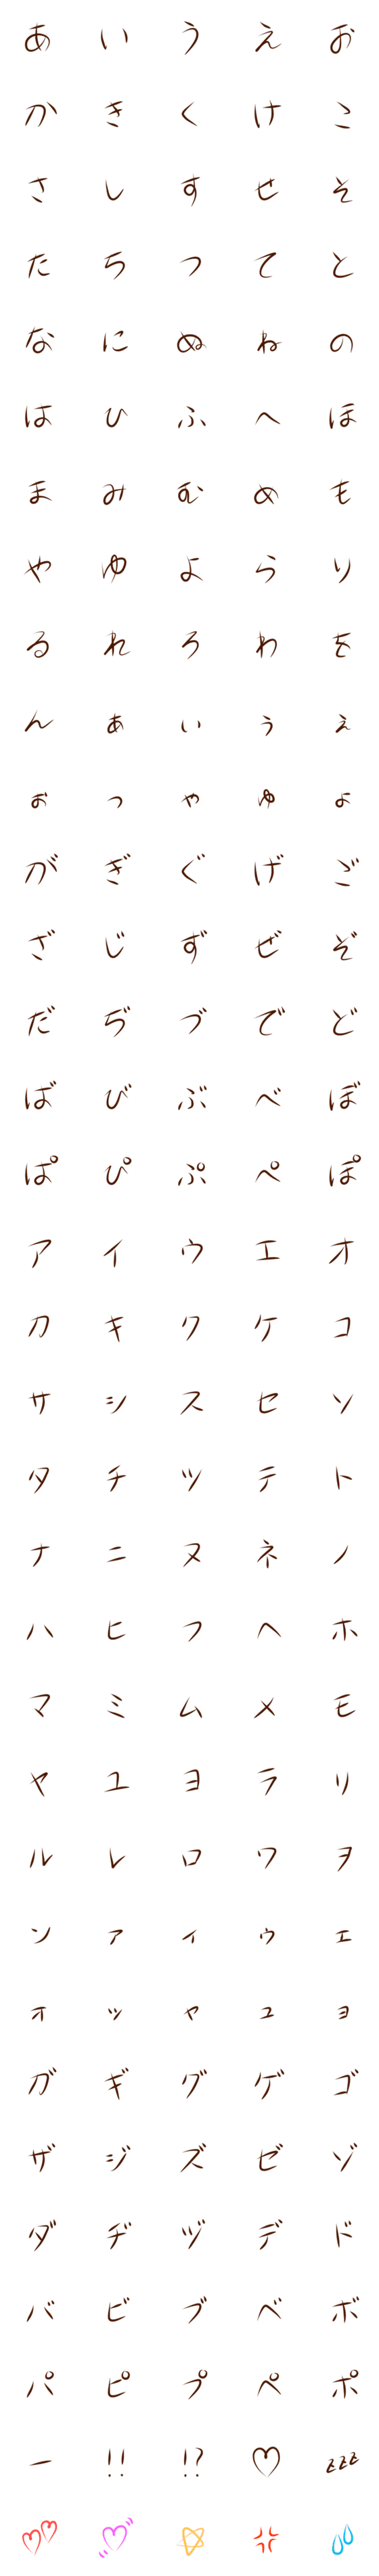 あ い う え お
か き く け こ
さ し す せ そ
た ち つ て と
な に ぬ ね の
は ひ ふ へ ほ
ま み む め も
や ゆ よ ら り
る れ ろ わ を
ん ぁ ぃ ぅ ぇ
ぉ っ ゃ ゅ ょ
が ぎ ぐ げ ご
ざ じ ず ぜ ぞ
だ ぢ づ で ど
ば び ぶ べ ぼ
ぱ ぴ ぷ ぺ ぽ
ア イ ウ エ オ
カ キ ク ケ コ
サ シ ス セ ソ
タ チ ツ テ ト
ナ ニ ヌ ネ ノ
ハ ヒ フ ヘ ホ
マ ミ ム メ モ
ヤ ユ ヨ ラ リ
ル レ ロ ワ ヲ
ン ァ ィ ゥ ェ
ォ ッ ャ ュ ョ
ガ ギ グ ゲ ゴ
ザ ジ ズ ゼ ゾ
ダ ヂ ヅ デ ド
バ ビ ブ ベ ボ
パ ピ プ ペ ポ
ー !! !? ♡ zzz